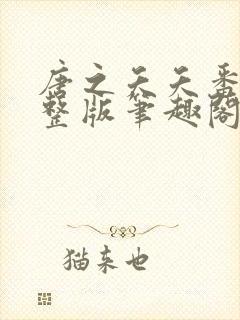 唐之天天番
整版笔趣阁
猫来也